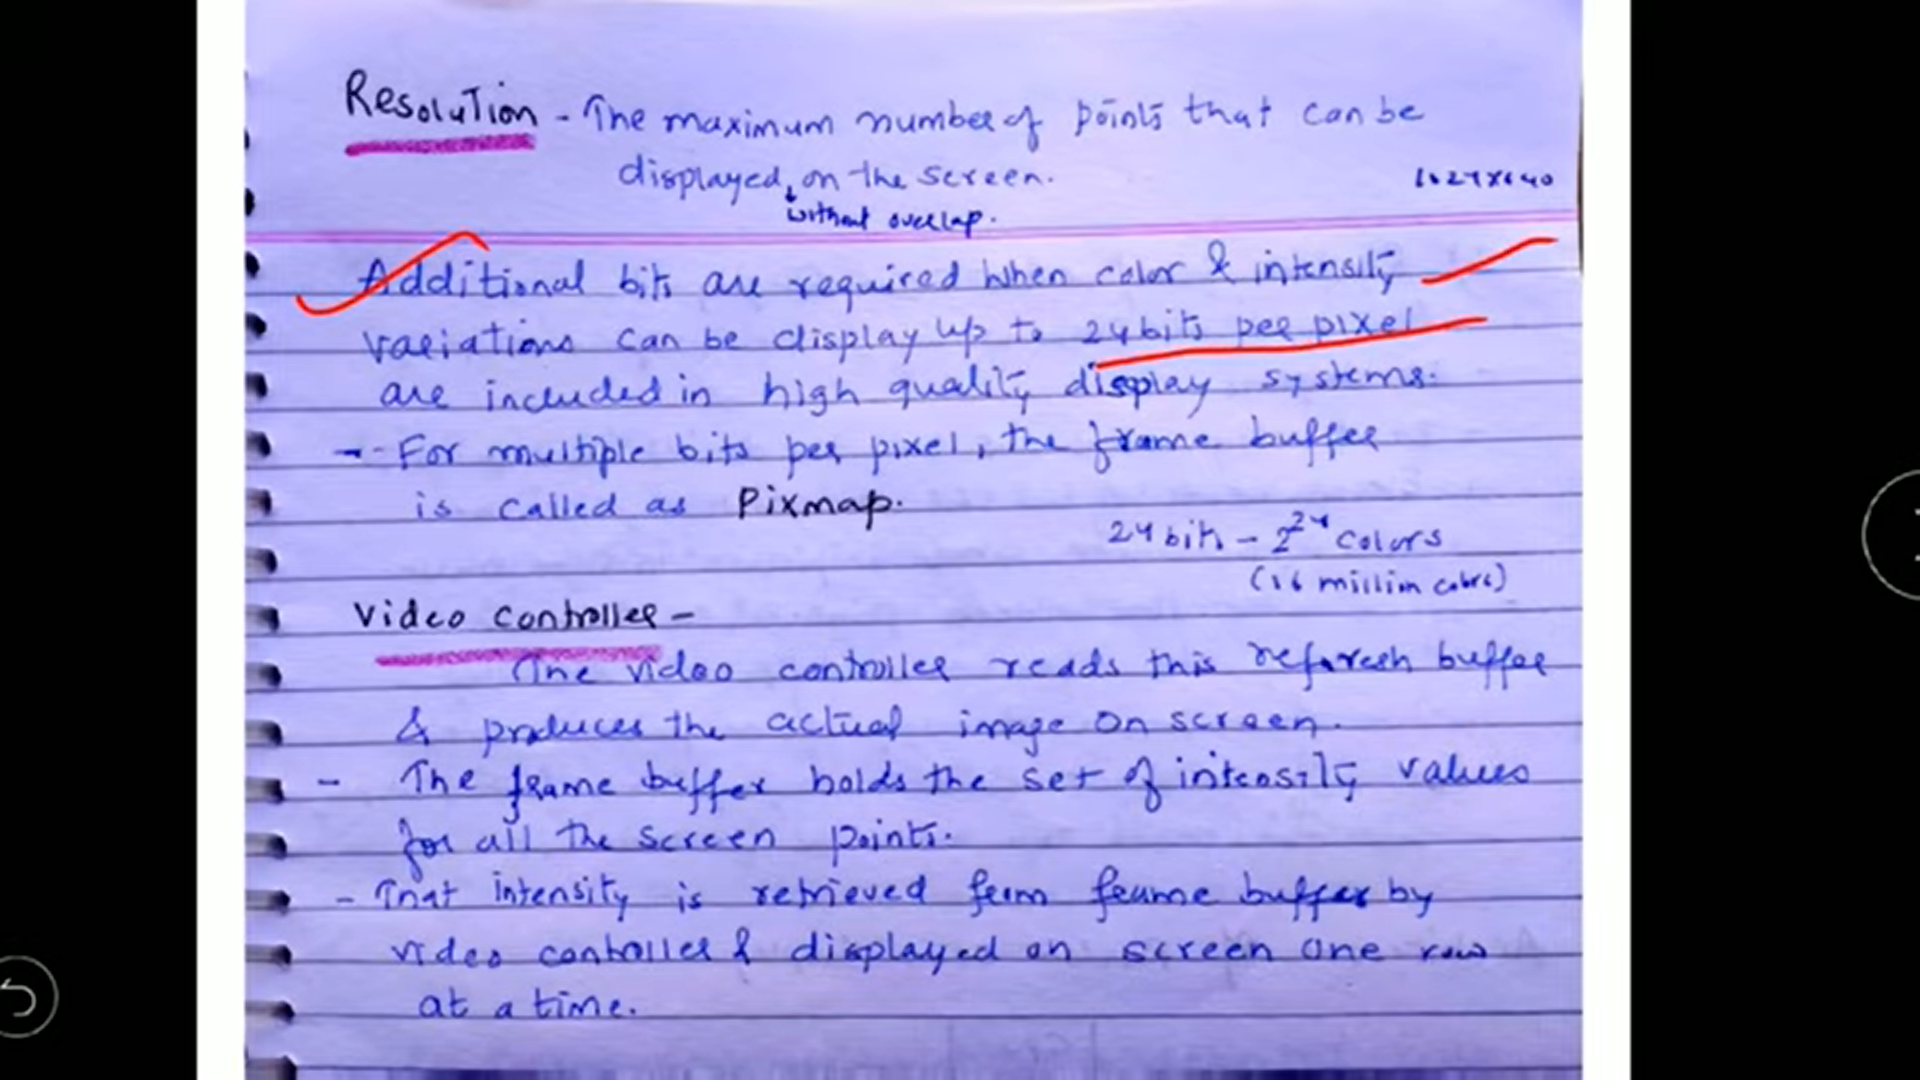 Resolution - The maximum number of points that can be
displayed on the screen.
1024x640
without overlap.
Additional bits are required when color & intensity
variations can be display up to 24 bits per pixel
are included in high quality display systems.
- For multiple bits per pixel, the frame buffer
is called as Pixmap.
24 bits - 2^24 colors
(16 million colors)
Video Controller -
The video controller reads this refaresh buffer
& produces the actual image on screen.
- The frame buffer holds the set of intensity values
for all the screen points.
- That intensity is retrieved from frame buffer by
video controller & displayed on screen one row
at a time.